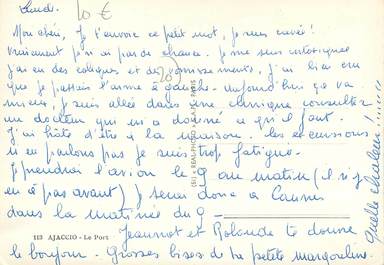 Lundi.
10 €
Mon chéri, Je t'envoie ce petit mot, je suis crevée!
vraiment je n'ai pas de chance. Je me suis intoxiquée
j'ai eu des coliques et des vomissements, j'ai bien cru
(20)
que je passais l'arme à gauche. aujourd'hui ça va
mieux, je suis allée dans une clinique consulter
un docteur qui m'a donné ce qu'il faut.
J'ai hâte d'être à la maison. les excursions!
n'en parlons pas je suis trop fatiguée.
Je prendrai l'avion le 9 au matin (il n'y
en a pas avant) Je serai donc à Cannes
dans la matinée du 9 -
113 AJACCIO - Le Port
Jeannot et Rolande te donne
le bonjour. Grosses bises de ta petite margouline.
quelle chaleur!!!
REAL-PHOTO